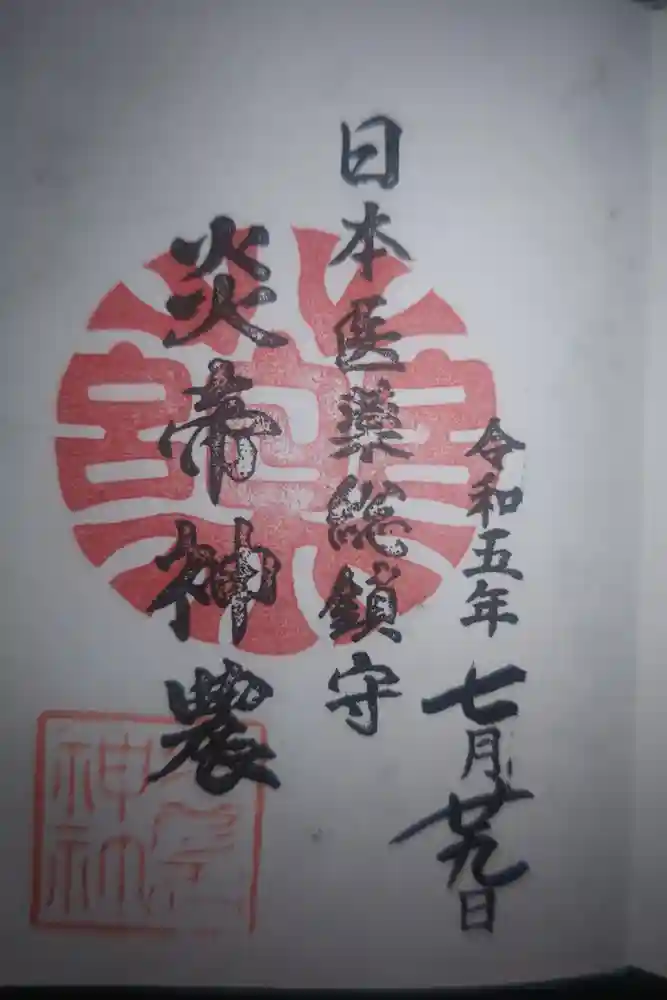 令和五年七月廿九日
日本医薬総鎮守
炎帝神農